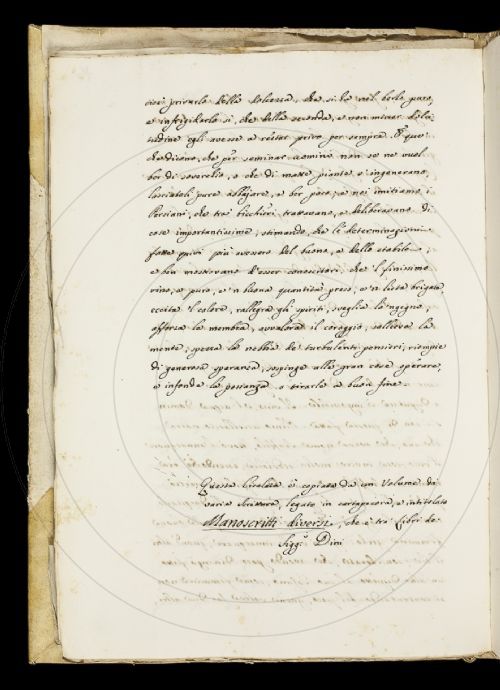 così privarlo della dolcezza, che si ha nel berlo puro,
e infrigidirlo sì, che della seconda, e non minor
egli avesse a restar privo per sempre. E que'
che dicono, che per seminar uomini non se ne vuol
ber di soverchio, o che di matte piante s' ingenerano,
lasciateli pure abbajare, e ber poco, e noi imitiamo i
Persiani, che tra' bicchieri trattavano, e deliberavano di
cose importantissime, stimando, che le determinazioni
fatte quivi più avessero del buono, e dello stabile,
e ben mostravano d'esser conoscitori, che 'l finissimo
vino, e puro, e 'n buona quantità preso, e 'n lieta brigata,
eccita 'l calore, rallegra gli spiriti, sveglia lo 'ngegno,
afforza le membra, avvalora il coraggio, solleva la
mente, spezza la nebbia de' turbulenti pensieri, riempie
di generosa speranza, sospinge alle gran cose operare,
e infonde la possanza a tirarle a buon fine.
Questa Cicalata è copiata da un Volume di
varie scritture, legato in cartapecora, e intitolato
Manoscritti diversi, che è tra' libri de'
Sigg.ri Dini